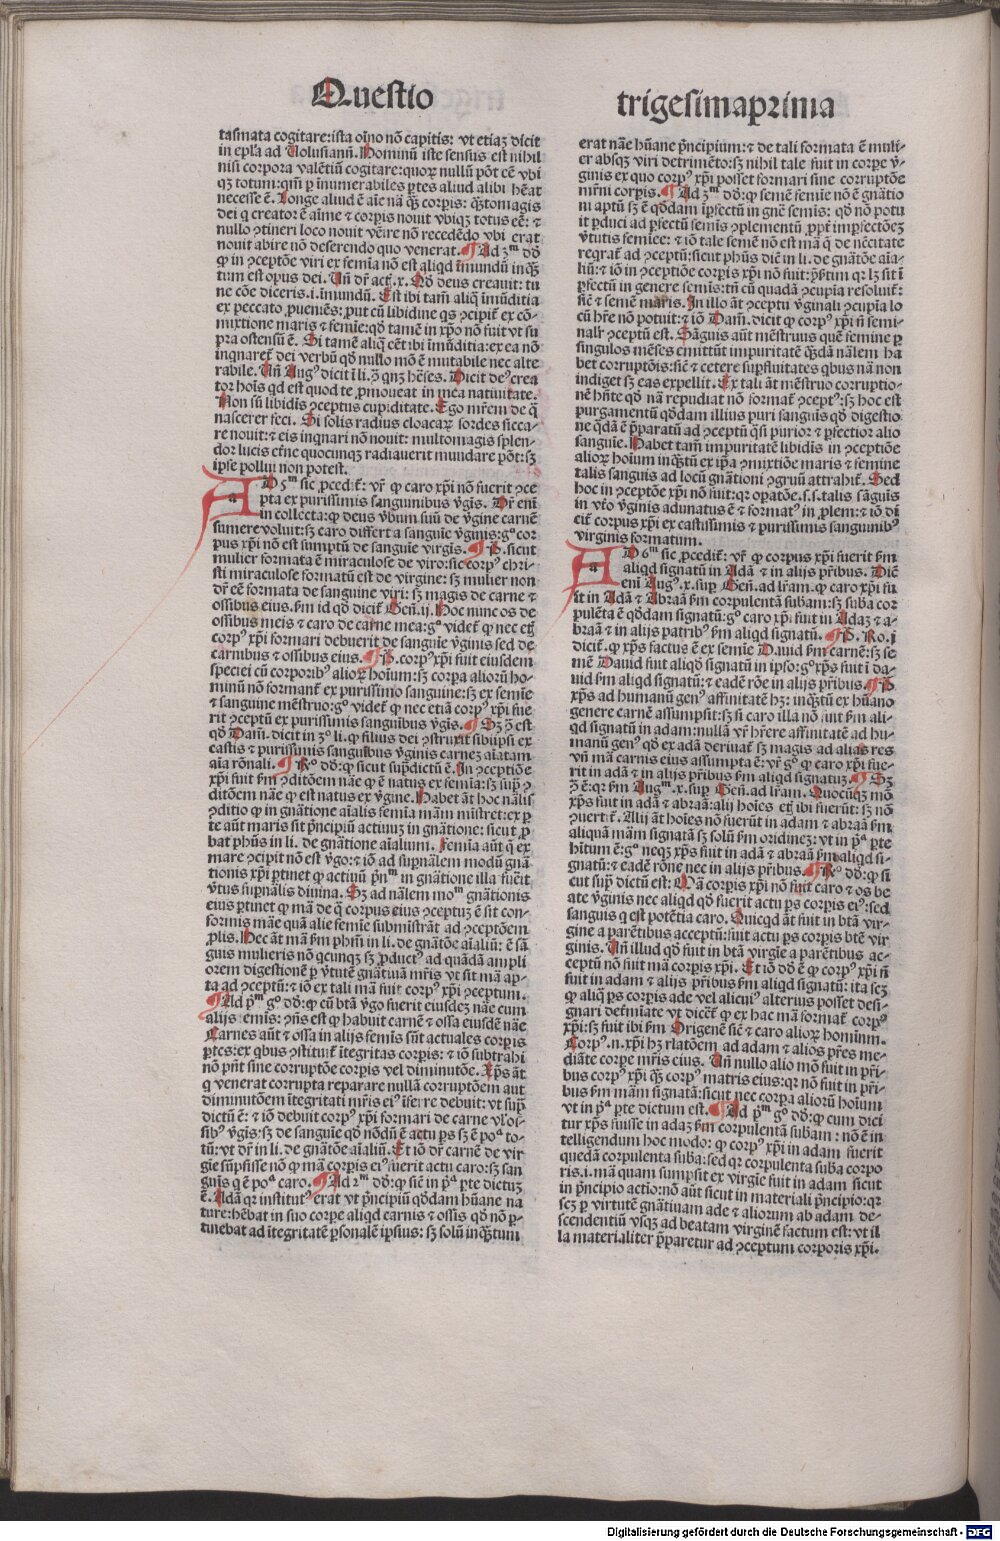 Questio trigesimaprima
tasmata cogitare: ista oīno nō capitis: vt etiaʒ dicit
in epl̄a ad Uolusianū. Hominū iste sensus est nihil
nisi corpora valētiū cogitare: quoꝝ nullū pōt eē vbi
qʒ totum: qm̄ ꝑ īnumerabiles ꝑtes aliud alibi hēat
necesse ē. Longe aliud ē aīe nā qʒ corpis: qʒtomagis
dei q̄ creator ē aīme ⁊ corpis nouit vbiqʒ totus eē: ⁊
nullo ꝯtineri loco nouit vēire nō recedēdo vbi erat
nouit abire nō deserendo quo venerat. ¶ Ad 3ᵐ dō
ꝙ in ꝯceptōe viri ex femīa nō est aliqd īmundū inqʒ
tum est opus dei. Un̄ dr̄ act. x. Qd̄ deus creauit: tu
ne cōe dixeris .i. īmundū. Est ibi tam̄ aliq̄ īmūditia
ex peccato ꝓueniēs: ꝓut cū libidine qs ꝯcipit̄ ex cō-
mixtione maris ⁊ femīe: qd̄ tamē in xp̄o nō fuit vt su
pra ostensū ē. Si tamē aliq̄ eēt ibi īmūditia: ex ea nō
inqnaret̄ dei verbū qd̄ nullo mō ē mutabile nec alte
rabile. Un̄ Augꝰ dicit ī li. ꝯ̄ qnʒ hēses. Dicit deꝰ crea
tor hoīs qd est quod te ꝑmoueat in mea natiuitate.
Non sū libidīs ꝯceptus cupiditate. Ego mr̄em de q̄
nascerer feci. Si solis radius cloacaꝝ sordes sicca-
re nouit: ⁊ eis inqnari nō nouit: multomagis splen-
dor lucis etn̄e quocunqʒ radiauerit mundare pōt: sʒ
ipse pollui non potest.
AD 5ᵐ sic ꝓcedit̄: vr̄ ꝙ caro xp̄i nō fuerit ꝯce
a pta ex purissimis sanguinibus ṽgīs. Dr̄ enī
in collecta: ꝙ deus ṽbum suū de ṽgine carnē
sumere voluit: sʒ caro differt a sanguie ṽginis: gᵒ cor
pus xp̄i nō est sumptū de sanguie virgīs. ¶ P. sicut
mulier formata ē miraculose de viro: sic corpꝰ chri-
sti miraculose formatū est de virgine: sʒ mulier non
dr̄ eē formata de sanguine viri: sʒ magis de carne ⁊
ossibus eius. ẜm id qd̄ dicit̄ Gen̄. ij. Hoc nunc os de
ossibus meis ⁊ caro de carne mea: gᵒ videt̄ ꝙ nec etʒ
corpꝰ xp̄i formari debuerit de sanguīe ṽginis sed de
carnibus ⁊ ossibus eius. ¶ P. corpꝰ xp̄i fuit eiusdem
speciei cū corporibꝰ alioꝝ hoīum: sʒ corpa alioꝝ ho-
minū nō formant̄ ex purissimo sanguine: sʒ ex semīe
⁊ sanguine mēstruo: gᵒ videt̄ ꝙ nec etiā corpꝰ xp̄i fue
rit ꝯceptū ex purissimis sanguībus ṽgīs. ¶ Sʒ ꝯ̄ est
qd̄ Dam̄. dicit in 3ᵒ li. ꝙ filius dei ꝯstruxit sibiipsi ex
castis ⁊ purissimis sanguībus ṽginis carneʒ aīatam
aīa rōnali. ¶ Rᵒ dō: ꝙ sicut supdictū ē. In ꝯceptiōe
xp̄i fuit ẜm ꝯditōem nāe ꝙ ē natus ex femīa: sʒ sup̄ ꝯ
ditōem nāe ꝙ est natus ex ṽgine. Habet āt hoc nālis
ꝯditio ꝙ in gn̄atione aīalis femīa mām mīstret: ex ꝑ
te aūt maris sit p̄ncipiū actiuuʒ in gn̄atione: sicut ꝓ
bat phūs in li. de gn̄atione aīalium. Femīa aūt q̄ ex
mare ꝯcipit nō est ṽgo: ⁊ iō ad supn̄alem modū gn̄a
tionis xp̄i ꝑtinet ꝙ actiuū p̄nᵐ in gn̄atione illa fuerit
ṽtus supn̄alis diuina. Sʒ ad nālem moᵐ gn̄ationis
eius ꝑtinet ꝙ mā de q̄ corpus eius ꝯceptuʒ ē sit con-
formis māe quā alie femīe submīstrāt ad ꝯceptōem
ꝓlis. Hec āt mā ẜm phm̄ in li. de gn̄atōe aīaliū: ē sā
guis mulieris nō qcunqʒ sʒ ꝓductꝰ ad quādā ampli
orem digestionē ꝑ ṽtutē gn̄atiuā mr̄is vt sit mā ap-
ta ad ꝯceptū: ⁊ iō ex tali mā fuit corpꝰ xp̄i ꝯceptum.
¶ Ad pᵐ gᵒ dō: ꝙ cū btā ṽgo fuerit eiusdeʒ nāe cum
alijs femīs: ꝯn̄s est ꝙ habuit carnē ⁊ ossa eiusdē nāe
Carnes aūt ⁊ ossa in alijs femīs sūt actuales corpis
ꝑtes: ex qbus ꝯstituit̄ ītegritas corpis: ⁊ iō subtrahi
nō pn̄t sine corruptōe corpis vel diminutōe. Xp̄s āt
q venerat corrupta reparare nullā corruptōem aut
diminutōem ītegritati mr̄is eiꝰ īferre debuit: vt sup̄
dictū ē: ⁊ iō debuit corpꝰ xp̄i formari de carne vl̄ os-
sibꝰ ṽgīs: sʒ de sanguīe qd̄ nōdū ē actu ꝑs sʒ ē poᵃ to-
tū: vt dr̄ in li. de gn̄atōe aīaliū. Et iō dr̄ carnē de vir-
gīe sūpsisse nō ꝙ mā corpis eiꝰ fuerit actu caro: sʒ san
guīs q̄ ē poᵃ caro. ¶ Ad 2ᵐ dō: ꝙ sic̄ in pᵃ pte dictuʒ
ē. Adā qr institutꝰ erat vt p̄ncipiū qddam hūane na
ture: hēbat in suo corpe aliqd carnis ⁊ ossis qd̄ nō ꝑ-
tinebat ad ītegritatē ꝑsonalē ipsius: sʒ solū inqʒtum
erat nāe hūane p̄ncipium: ⁊ de tali formata ē muli-
er absqʒ viri detrimēto: sʒ nihil tale fuit in corpe ṽ-
ginis ex quo corpꝰ xp̄i posset formari sine corruptōe
mr̄ni corpis. ¶ Ad 3ᵐ dō: ꝙ semē femīe nō ē gn̄atio
ni aptū sʒ ē qddam īꝑfectū in gn̄e semīs: qd̄ nō potu
it ꝑduci ad ꝑfectū semīs ꝯplementū ꝓpt̄ imꝑfectōeʒ
ṽtutis femīee: ⁊ iō tale semē nō est mā q̄ de nc̄citate
reqrat̄ ad ꝯceptū: sicut phūs dic̄ in li. de gn̄atōe aīa-
liū: ⁊ iō in ꝯceptiōe corpis xp̄i nō fuit: p̄sertim qr lʒ sit ī
ꝑfectū in genere semīs: tn̄ cū quadā ꝯcupīa resoluit̄:
sic̄ ⁊ semē maris. In illo āt ꝯceptu ṽginali ꝯcupīa lo
cū hr̄e nō potuit: ⁊ iō Dam̄. dicit ꝙ corpꝰ xp̄i n̄ semi-
nalr̄ ꝯceptū est. Sāguis aūt mēstruus quē femīe ꝑ
singulos mēses emittūt impuritatē qʒdā nālem ha
bet corruptōis: sic̄ ⁊ cetere supfluitates qbus nā non
indiget sʒ eas expellit. Ex tali āt mēstruo corruptio-
nē hn̄te qd̄ nā repudiat nō format̄ ꝯceptꝰ: sʒ hoc est
purgamentū qddam illius puri sanguīs qd̄ digestio
ne qdā ē p̄paratū ad ꝯceptū q̄si purior ⁊ ꝑfectior alio
sanguīe. Habet tam̄ impuritatē libidīs in ꝯceptiōe
alioꝝ hoīum inqʒtū ex ip̄a ꝯmixtiōe maris ⁊ femīne
talis sanguis ad locū gn̄ationi ꝯgruū attrahit̄. Sed
hoc in ꝯceptōe xp̄i nō fuit: qr opatōe .s.s. talis sāguīs
in vt̄o ṽginis adunatus ē ⁊ formatꝰ in ꝓlem: ⁊ iō dī
cit̄ corpus xp̄i ex castissimis ⁊ purissimis sanguinibꝰ
virginis formatum.
AD 6ᵐ sic ꝓcedit̄: vr̄ ꝙ corpus xp̄i fuerit ẜm
a aliqd signatū in Adā ⁊ in alijs pr̄ibus. Dic̄
enī Augꝰ. x. sup̄ Gen̄. ad lr̄am. ꝙ caro xp̄i fu
it in Adā ⁊ Abraā ẜm corpulentā subam: sʒ suba cor
pulēta ē qddam signatū: gᵒ caro xp̄i fuit in Adaʒ ⁊ a-
braā ⁊ in alijs patribꝰ ẜm aliqd signatū. ¶ P. Ro. j
dicit̄. ꝙ xp̄s factus ē ex semīe Dauid ẜm carnē: sʒ se
mē Dauid fuit aliqd signatū in ipso: gᵒ xp̄s fuit ī da-
uid ẜm aliqd signatū: ⁊ eadē rōe in alijs pr̄ibus. ¶ P.
xp̄s ad humanū genꝰ affinitatē hʒ: inqʒtū ex hūano
genere carnē assumpsit: sʒ si caro illa nō fuit ẜm ali-
qd signatū in adam: nullā vr̄ hr̄e affinitatē ad hu-
manū genꝰ qd̄ ex adā deriuat̄ sʒ magis ad alias res
vn̄ mā carnis eius assumpta ē: vr̄ gᵒ ꝙ caro xp̄i fue-
rit in adā ⁊ in alijs pr̄ibus ẜm aliqd signatuʒ. ¶ Sʒ
ꝯ̄ ē: qr ẜm Augᵐ. x. sup̄ Gen̄. ad lr̄am. Quocūqʒ mō
xp̄s fuit in adā ⁊ abraā: alij hoīes etʒ ibi fuerūt: sʒ nō
ꝯuertit̄. Alij āt hoīes nō fuerūt in adam ⁊ abraā ẜm
aliquam mām signatā sʒ solū ẜm origineʒ: vt in pᵃ pte
hītum ē: gᵒ neqʒ xp̄s fuit in adā ⁊ abraā ẜm aliqd si-
gnatū: ⁊ eadē rōne nec in alijs pr̄ibus. ¶ Rᵒ dō: ꝙ si
cut sup̄ dictū est: Mā corpis xp̄i nō fuit caro ⁊ os be
ate ṽginis nec aliqd qd̄ fuerit actu ꝑs corpis eiꝰ: sed
sanguis q̄ est potētia caro. Quicqd āt fuit in btā vir-
gine a parētibus acceptū: fuit actu ꝑs corpis btē vir
ginis. Un̄ illud qd̄ fuit in btā virgīe a parētibus ac-
ceptū nō fuit mā corpis xp̄i. Et iō dō ē ꝙ corpꝰ xp̄i n̄
fuit in adam ⁊ alijs pr̄ibus ẜm aliqd signatū: ita scʒ
ꝙ aliq̄ ꝑs corpis ade vel alicuiꝰ alterius posset desi-
gnari det̄miate vt dicet̄ ꝙ ex hac mā format̄ corpꝰ
xp̄i: sʒ fuit ibi ẜm Origenē sic̄ ⁊ caro alioꝝ hominm̄.
Corpꝰ .n. xp̄i hʒ rlatōem ad adam ⁊ alios pr̄es me-
diāte corpe mr̄is eius. Un̄ nullo alio mō fuit in pr̄i-
bus corpꝰ xp̄i qʒ corpꝰ matris eius: qr nō fuit in pr̄i-
bus ẜm mām signatā: sicut nec corpa alioꝝ hoīum
vt in pᵃ pte dictum est. ¶ Ad pᵐ gᵒ dō: ꝙ cum dici
tur xp̄s fuisse in adaʒ ẜm corpulentā subam: nō ē in
telligendum hoc modo: ꝙ corpꝰ xp̄i in adam fuerit
quedā corpulenta suba: sed qr corpulenta suba corpo
ris .i. mā quam sumpsit ex virgīe fuit in adam sicut
in p̄ncipio actiuo: nō aūt sicut in materiali p̄ncipio: qr
scʒ ꝑ virtutē gn̄atiuam ade ⁊ aliorum ab adam de-
scendentiū vsqʒ ad beatam virginē factum est: vt il
la materialiter p̄pararetur ad ꝯceptum corporis xp̄i.
Digitalisierung gefördert durch die Deutsche Forschungsgemeinschaft - DFG